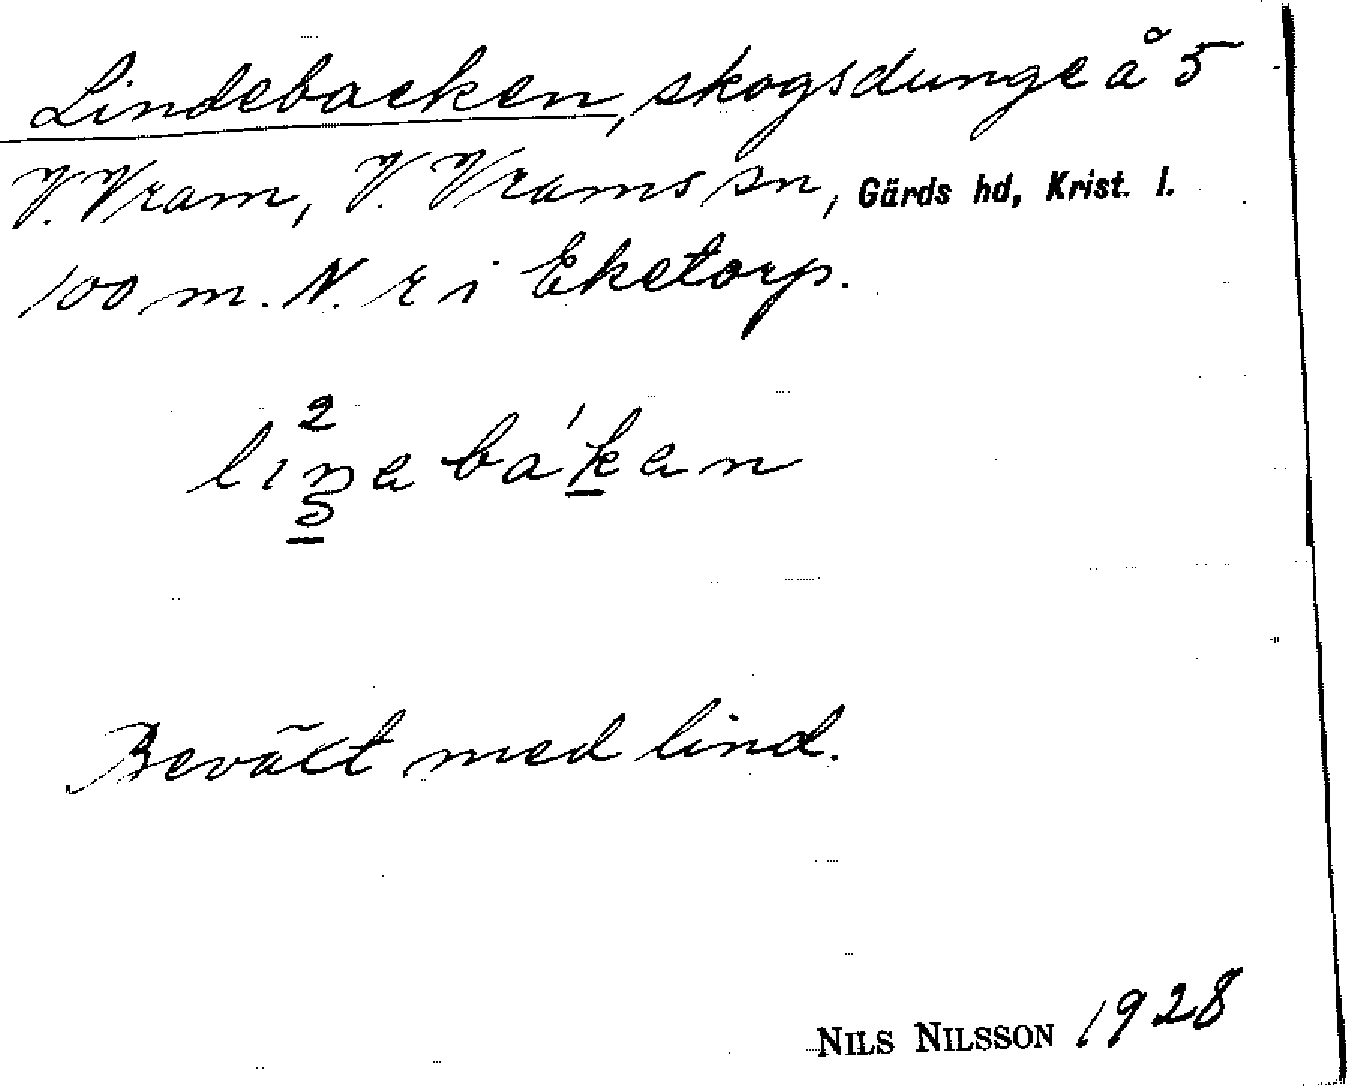 Lindebacken, skogsdunge å 5
V. Vram, V. Vrams sn, Gärds hd, Krist. l.
100 m. N. r i Eketorp.
Beväxt med lind.
NILS NILSSON 1928